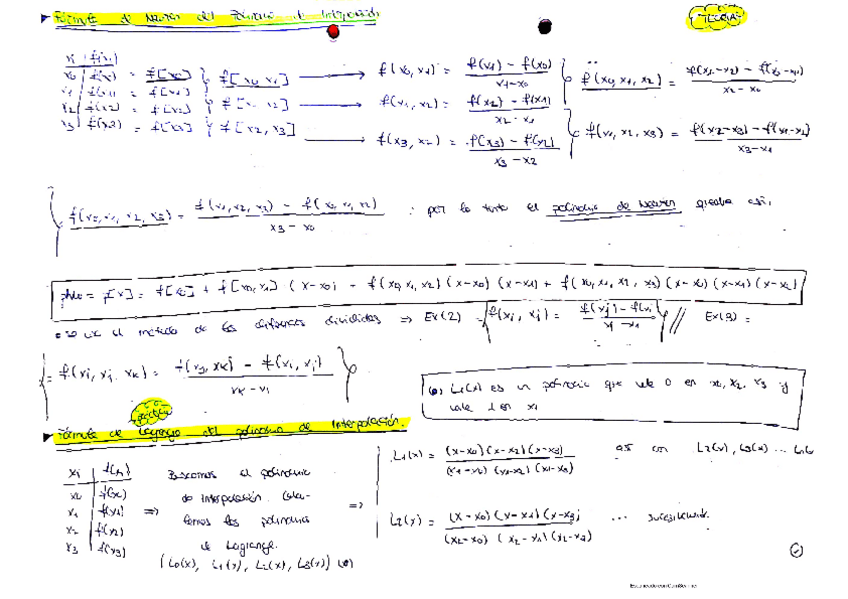 ► Fórmula de Newton del Polinomio de Interpolación
TEORÍA
xi | f(xi)
x0 | f(x0) = f[x0] } f[x0, x1] → f(x0, x1) = f(x1) - f(x0) / x1-x0 } f(x0, x1, x2) = f(x1-x2) - f(x0-x1) / x2 - x0
x1 | f(x1) = f[x1]
x2 | f(x2) = f[x2] } f[x1, x2] → f(x1, x2) = f(x2) - f(x1) / x2 - x1
x3 | f(x3) = f[x3] } f[x2, x3] → f(x3, x2) = f(x3) - f(x2) / x3 - x2 } f(x1, x2, x3) = f(x2-x3) - f(x1-x2) / x3-x1
f(x0, x1, x2, x3) = f(x1, x2, x3) - f(x0, x1, x2) / x3 - x0 : por lo tanto el polinomio de Newton queda así,
p[x] = f[x0] + f[x0, x1] · (x-x0) + f(x0, x1, x2) (x-x0) (x-x1) + f(x0, x1, x2, x3) (x-x0) (x-x1) (x-x2)
el método de las diferencias divididas ⇒ Ex(2) = f(xi, xj) = f(xj) - f(xi) / xj - xi // Ex(3) =
= f(xi, xj, xk) = f(xj, xk) - f(xi, xj) / xk - xi
(*) L1(x) es un polinomio que vale 0 en x0, x2, x3 y
vale 1 en x1
► Fórmula de Lagrange del polinomio de Interpolación.
xi | f(xi)
x0 | f(x0)
x1 | f(x1)
x2 | f(x2)
x3 | f(x3)
⇒ Buscamos el polinomio
de interpolación. Calcu-
lamos los polinomios
de Lagrange.
(L0(x), L1(x), L2(x), L3(x)) (*)
⇒ L1(x) = (x-x0) (x-x2) (x-x3) / (x1-x0) (x1-x2) (x1-x3) así con L2(x), L3(x) ...
L2(x) = (x-x0) (x-x1) (x-x3) / (x2-x0) (x2-x1) (x2-x3) ... sucesivamente.
Escaneado con CamScanner